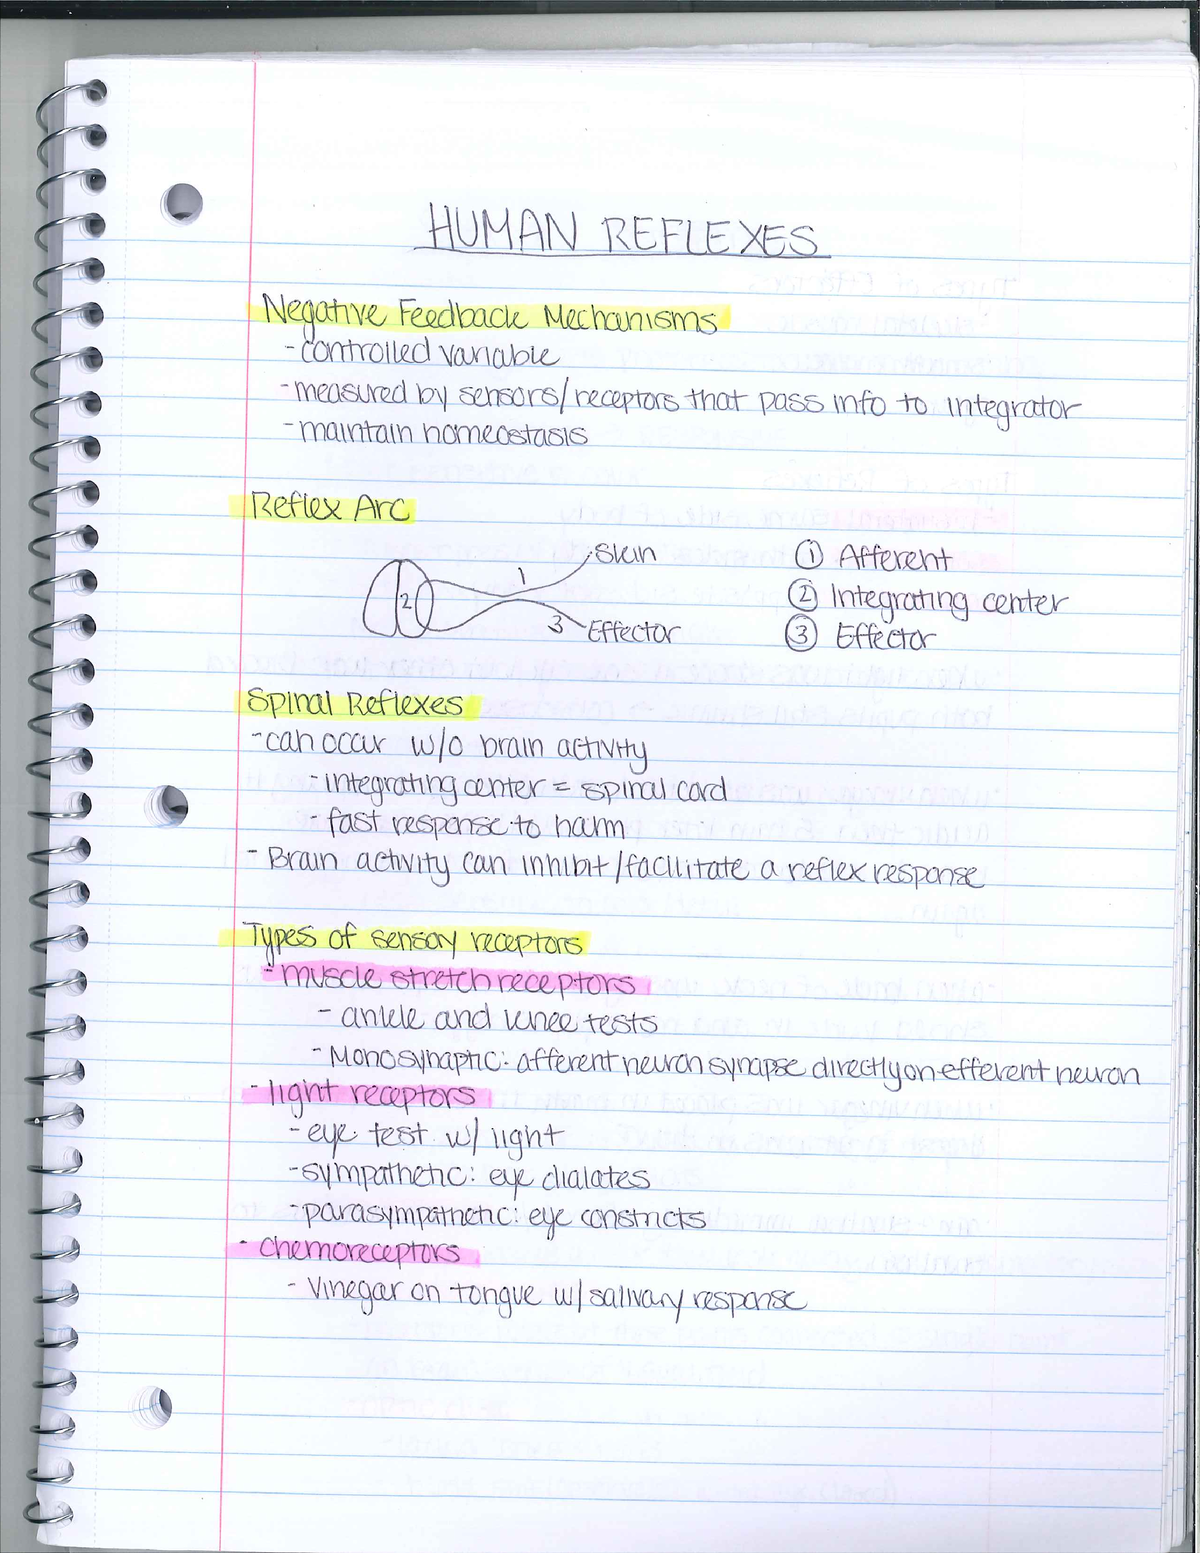 HUMAN REFLEXES
Negative Feedback Mechanisms
- controlled variable
- measured by sensors/receptors that pass info to integrator
- maintain homeostasis
Reflex Arc
Skin
1
2
3 Effector
① Afferent
② Integrating center
③ Effector
Spinal Reflexes
- can occur w/o brain activity
- integrating center = spinal cord
- fast response to harm
- Brain activity can inhibit/facilitate a reflex response
Types of sensory receptors
- muscle stretch receptors
- ankle and knee tests
- Monosynaptic: afferent neuron synapse directly on efferent neuron
- light receptors
- eye test w/ light
- sympathetic: eye dialates
- parasympathetic: eye constricts
- chemoreceptors
- Vinegar on tongue w/ salivary response